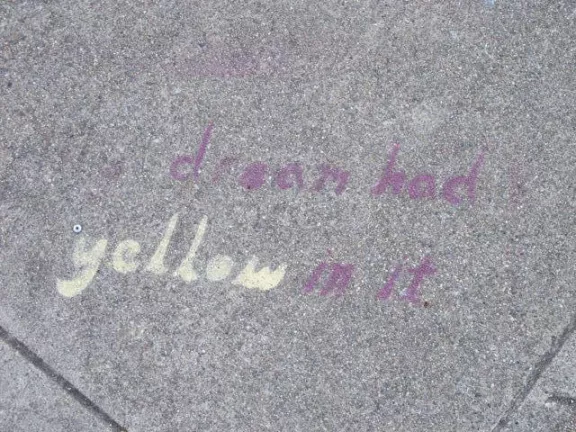 dream had
yellow in it